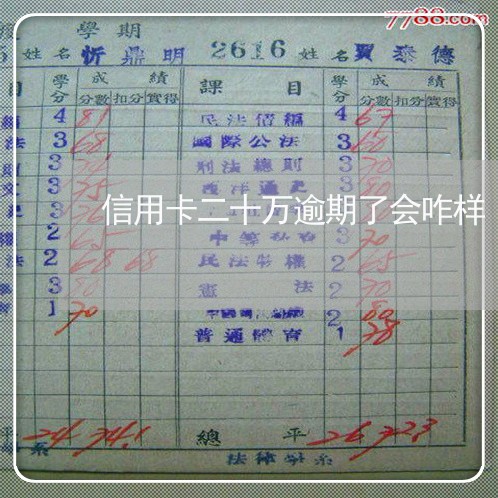 7788.com
度 學期
5 姓名 忻鼎明 2616 姓名 賈泰德
目 學分 成績 課目 學分 成績
分數 扣分 實得 分數 扣分 實得
4 81 民法債編 4 67
法 3 68 國際公法 3 60
3 刑法總則 3 70
3 75 西洋通史 3 80
信用卡二十万逾期了会咋样
2 65 3 70
法 2 68 68 民法物權 2 65
3 80 憲法 2 70
1 70 2 80
普通體育 1 78
平 24 74.1 總平 26 72.3
系 法律學系